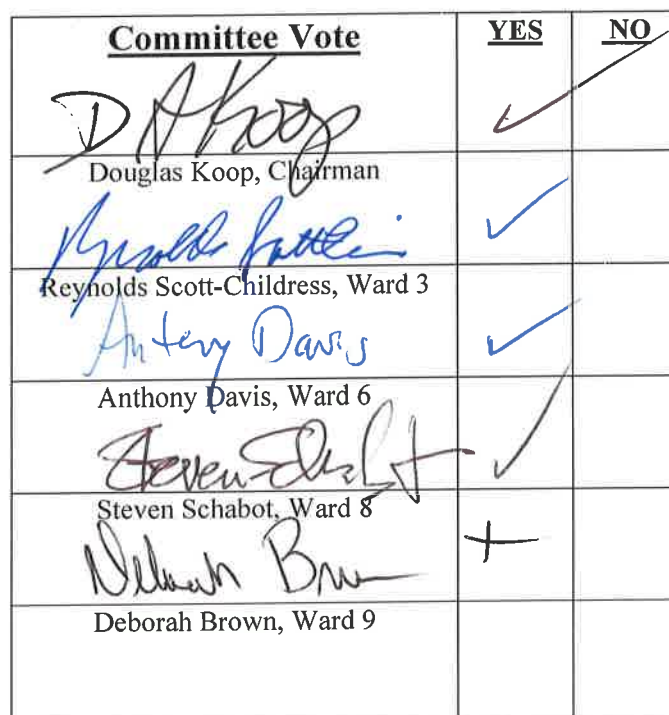 Committee Vote YES NO
D A Koop ✓
Douglas Koop, Chairman
Reynolds ✓
Reynolds Scott-Childress, Ward 3
Antony Davis ✓
Anthony Davis, Ward 6
Steven Schabot ✓
Steven Schabot, Ward 8
Deborah Brown +
Deborah Brown, Ward 9